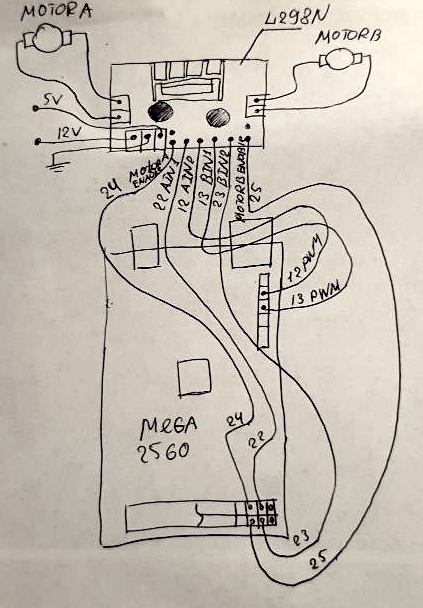 MOTORA
L298N
MOTORB
5V
12V
24
MOTORA ENABLE
22 AIN1
12 AIN2
13 BIN1
23 BIN2
MOTORB ENABLE
25
12 PWM
13 PWM
MEGA
2560
24
22
23
25